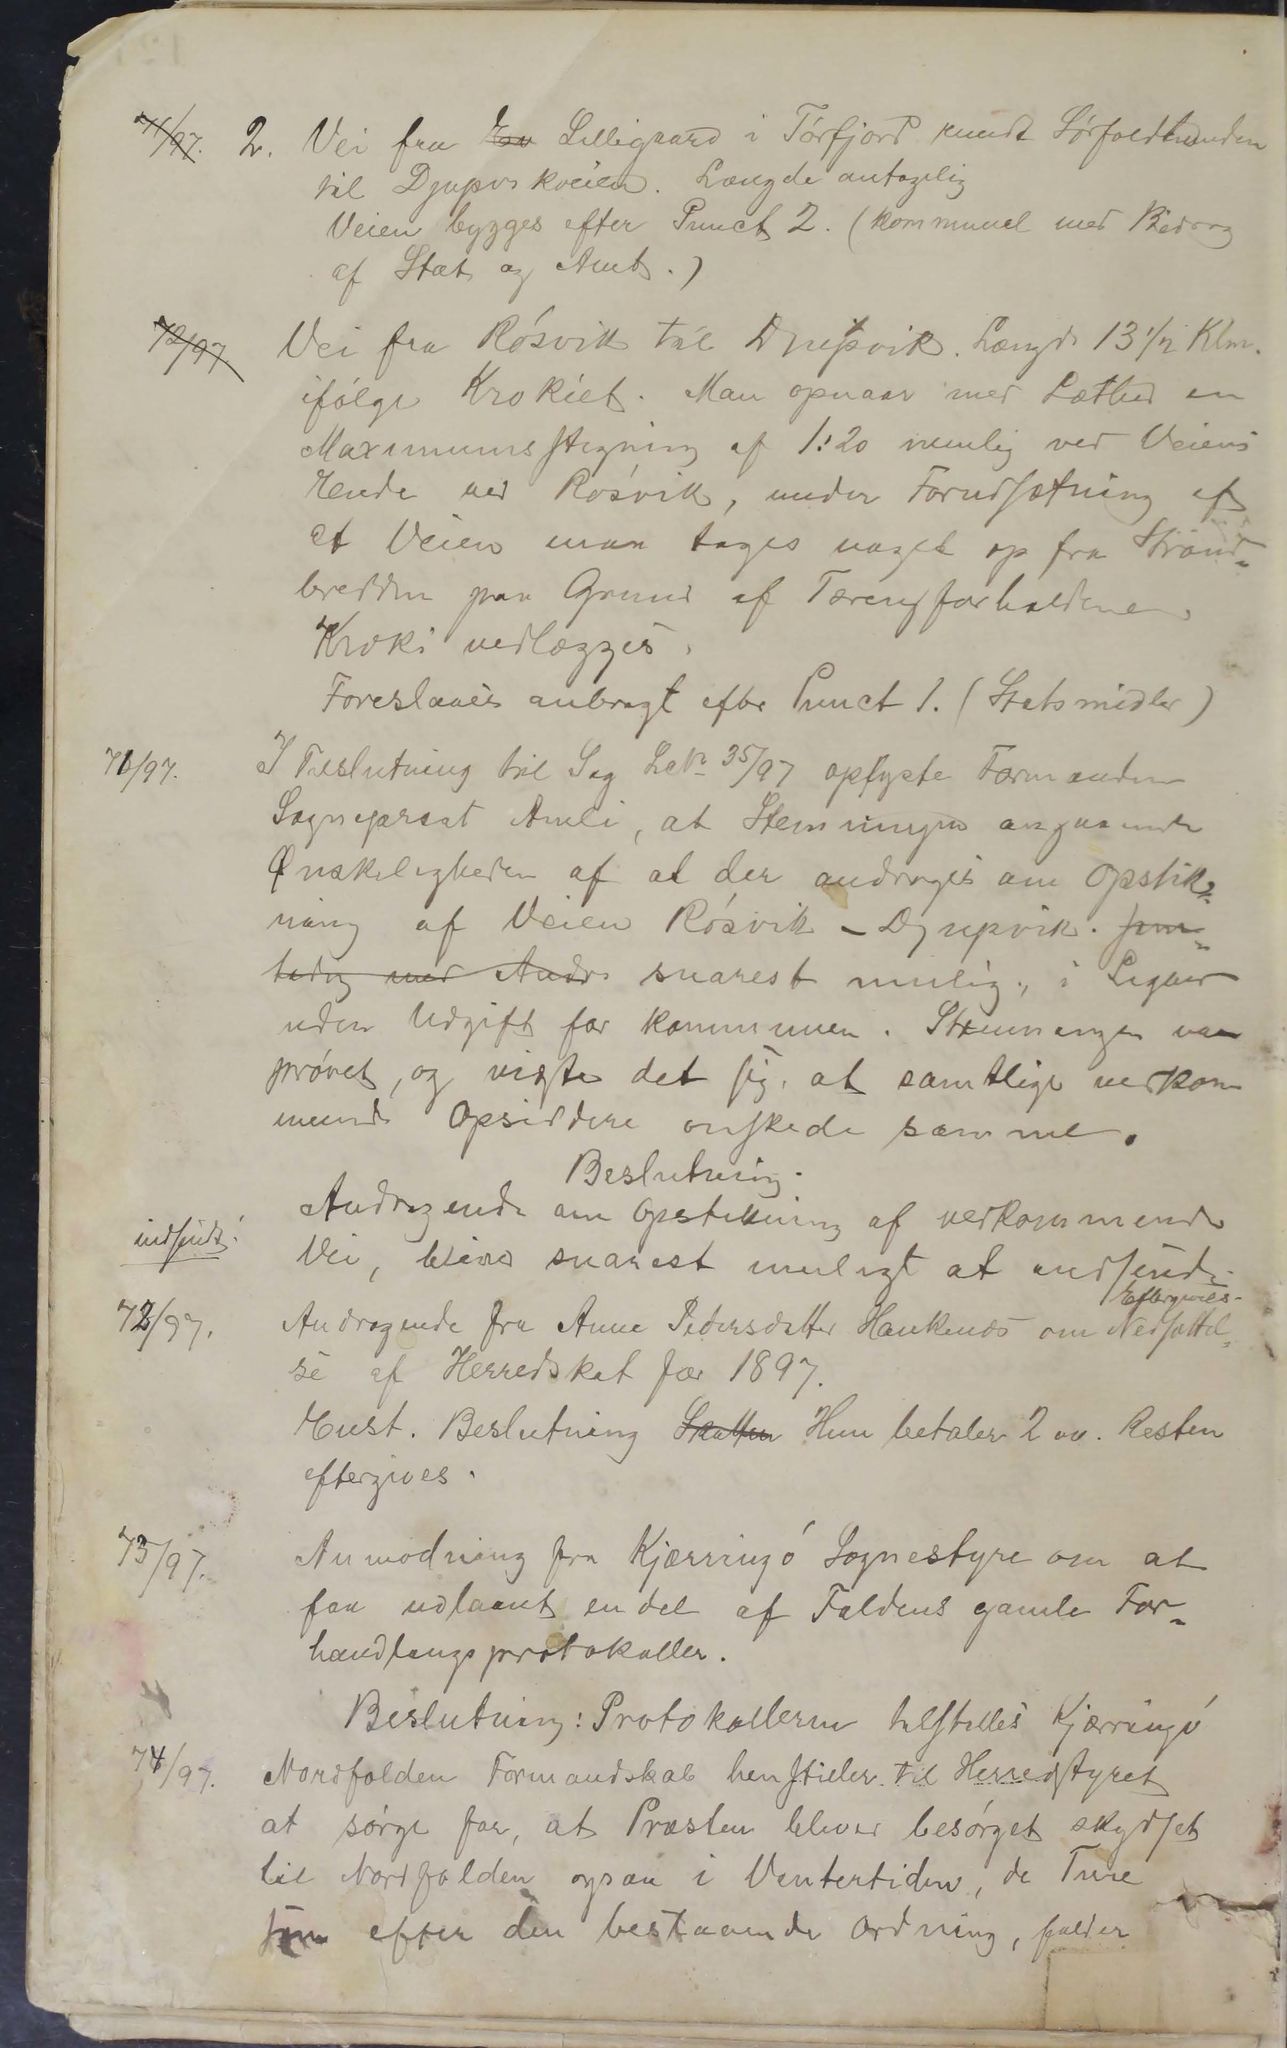 71/97. 2. Vei fra En Lillegaard i Tørfjord rundt Sørfoldbunden
til Djupvskveien. Længde antagelig
Veien bygges efter Punct 2. (kommunel med Bidrag
af Stat og Amt.)
72/97 Vei fra Rósvik til Djupvik. Længde 13 1/2 Klm.
ifólge Krokiet. Man opnaar med Lethed en
Maximumsstigning af 1:20 nemlig ved Veiens
Ende ved Rósvik, under Forudsætning af
at Veien maa tages noget op fra Strand-
bredden paa Grund af Terængforholdene.
Kroki vedlægges.
Foreslaaes anbragt efter Punct 1. (Statsmidler)
71/97. I Tilslutning til Sag LNr 35/97 oplyste Formanden
Sogneprest Amli, at Stemningen angaaende
Ønskeligheden af at der andrages om Opstik-
ning af Veien Rósvik - Djupvik.
snarest mulig, i
uden Udgift for kommunen. Stemningen var
prøvet, og viste det sig, at samtlige vedkom
mende Opsiddere onskede samme.
Beslutning.
Andragende om Opstikning af vedkommende
indsendt! Vei, bliver snarest muligt at indsende.
72/97. Andragende fra Anne Pedersdatter Haukenæs om Nedsættel-
Eftergivels-
se af Herredskat for 1897.
Enst. Beslutning Skatten Hun betaler 2 Resten
eftergives.
73/97. Anmodning fra Kjærringó Sognestyre om at
faa udlaant en del af Foldens gamle For-
handlingsprotokoller.
Beslutning: Protokollerne tilstilles Kjærringó
74/97. Nordfolden Formandskab henstiller til Herredstyret
at sørge for, at Præsten bliver besórget skydset
til Nordfolden ogsaa i Ventertiden, de Ture
som efter den bestaaende Ordning, falder